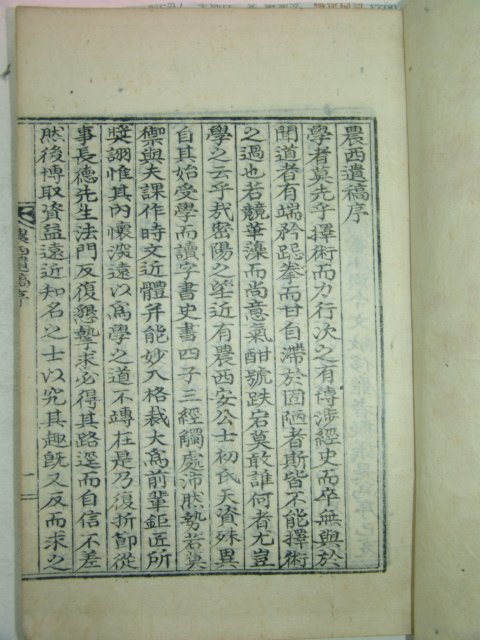 農西遺稿序
學者莫先乎擇術而力行次之有博涉經史而卒無與於
聞道者有端矜跽拳而甘自滯於固陋者斯皆不能擇術
之過也若競華藻而尚意氣酣號跌宕莫敢誰何者尤豈
學之云乎哉密陽之 近有農西安公士初氏天資殊異
自其始受學而讀字書史書四子三經觸處沛然勢若莫
禦與夫課作時文近體幷能妙入格裁大爲前輩鉅匠所
奬詡惟其內懷深遠以爲學之道不專在是乃復折節從
事長德先生法門反復懇摯求必得其路逕而自信不差
然後博取資益遠近知名之士以究其趣旣又反而求之
農西遺稿序
一